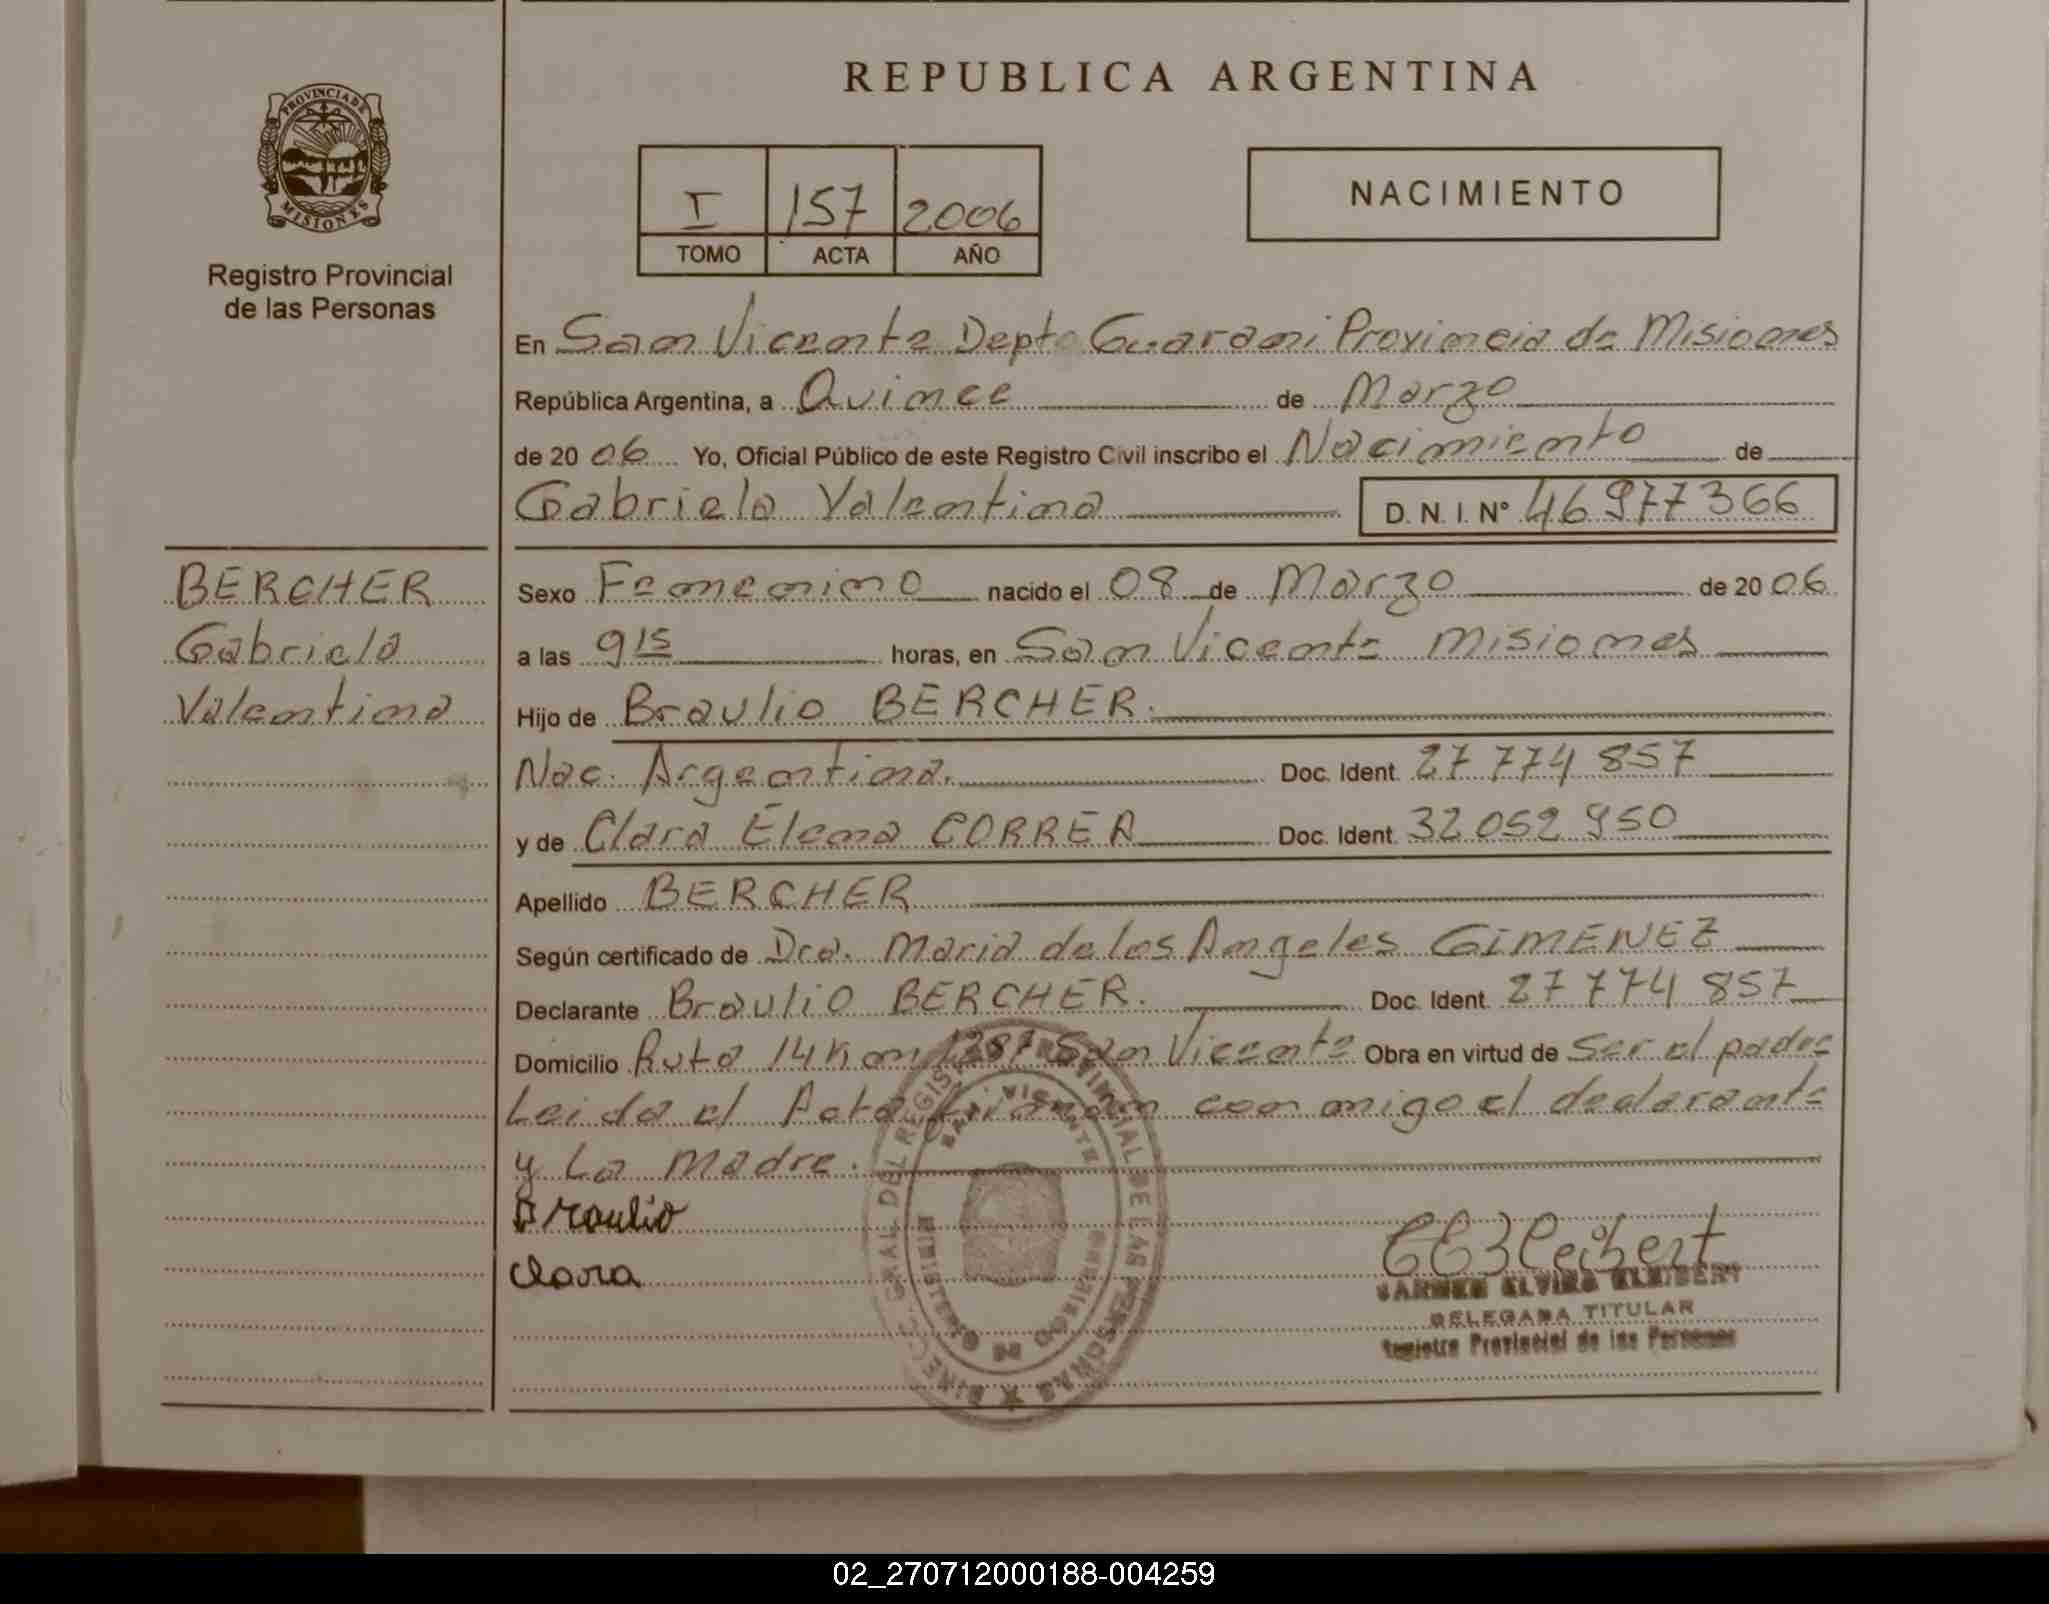 PROVINCIA DE
MISIONES
Registro Provincial
de las Personas
REPUBLICA ARGENTINA
I 157 2006
TOMO ACTA AÑO
NACIMIENTO
En San Vicente Depto Guarani Provincia de Misiones
República Argentina, a Quince de Marzo
de 20 06 Yo, Oficial Público de este Registro Civil inscribo el Nacimiento de
Gabriela Valentina D. N. I. N° 46977366
BERCHER
Gabriela
Valentina
Sexo Femenino nacido el 08 de Marzo de 20 06
a las 9 15 horas, en San Vicente Misiones
Hijo de Braulio BERCHER.
Nac. Argentina. Doc. Ident. 27 774 857
y de Clara Elena CORREA Doc. Ident. 32 052 950
Apellido BERCHER
Según certificado de Dra. Maria de los Angeles GIMENEZ
Declarante Braulio BERCHER. Doc. Ident. 27 774 857
Domicilio Ruta 14 Km 1287 San Vicente Obra en virtud de Ser el padre
Leida el Acta Firman con migo el declarante
y La Madre.
Braulio
Clara
CARMEN ELVIRA KLEIBERT
DELEGADA TITULAR
Registro Provincial de las Personas
DIRECC. GRAL DEL REGISTRO PROVINCIAL DE LAS PERSONAS
SAN VICENTE
MINISTERIO DE GOBIERNO
02_270712000188-004259